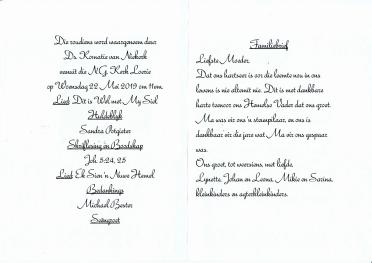 Die roudiens word waargeneem deur
Ds. Kornatie van Niekerk
vanuit die N.G. Kerk Loerie
op Woensdag 22 Mei 2019 om 11vm.
Lied: Dit is Wel met My Siel
Huldeblyk
Sandra Potgieter
Skriflesing en Boodskap
Joh. 5:24, 25
Lied: Ek Sien 'n Nuwe Hemel
Bedankings
Michael Bester
Seëngroet
Familiebrief
Liefste Moeder.
Dat ons hartseer is oor die leemte nou in ons
lewens is nie altemit nie. Dit is met dankbare
harte teenoor ons Hemelse Vader dat ons groet.
Ma was vir ons 'n staatmaker, en ons is
dankbaar vir die jare wat Ma vir ons gespaar
was.
Ons groet, tot weersiens, met liefde.
Lynette, Johan en Leona, Mikie en Sarina,
kleinkinders en agterkleinkinders.